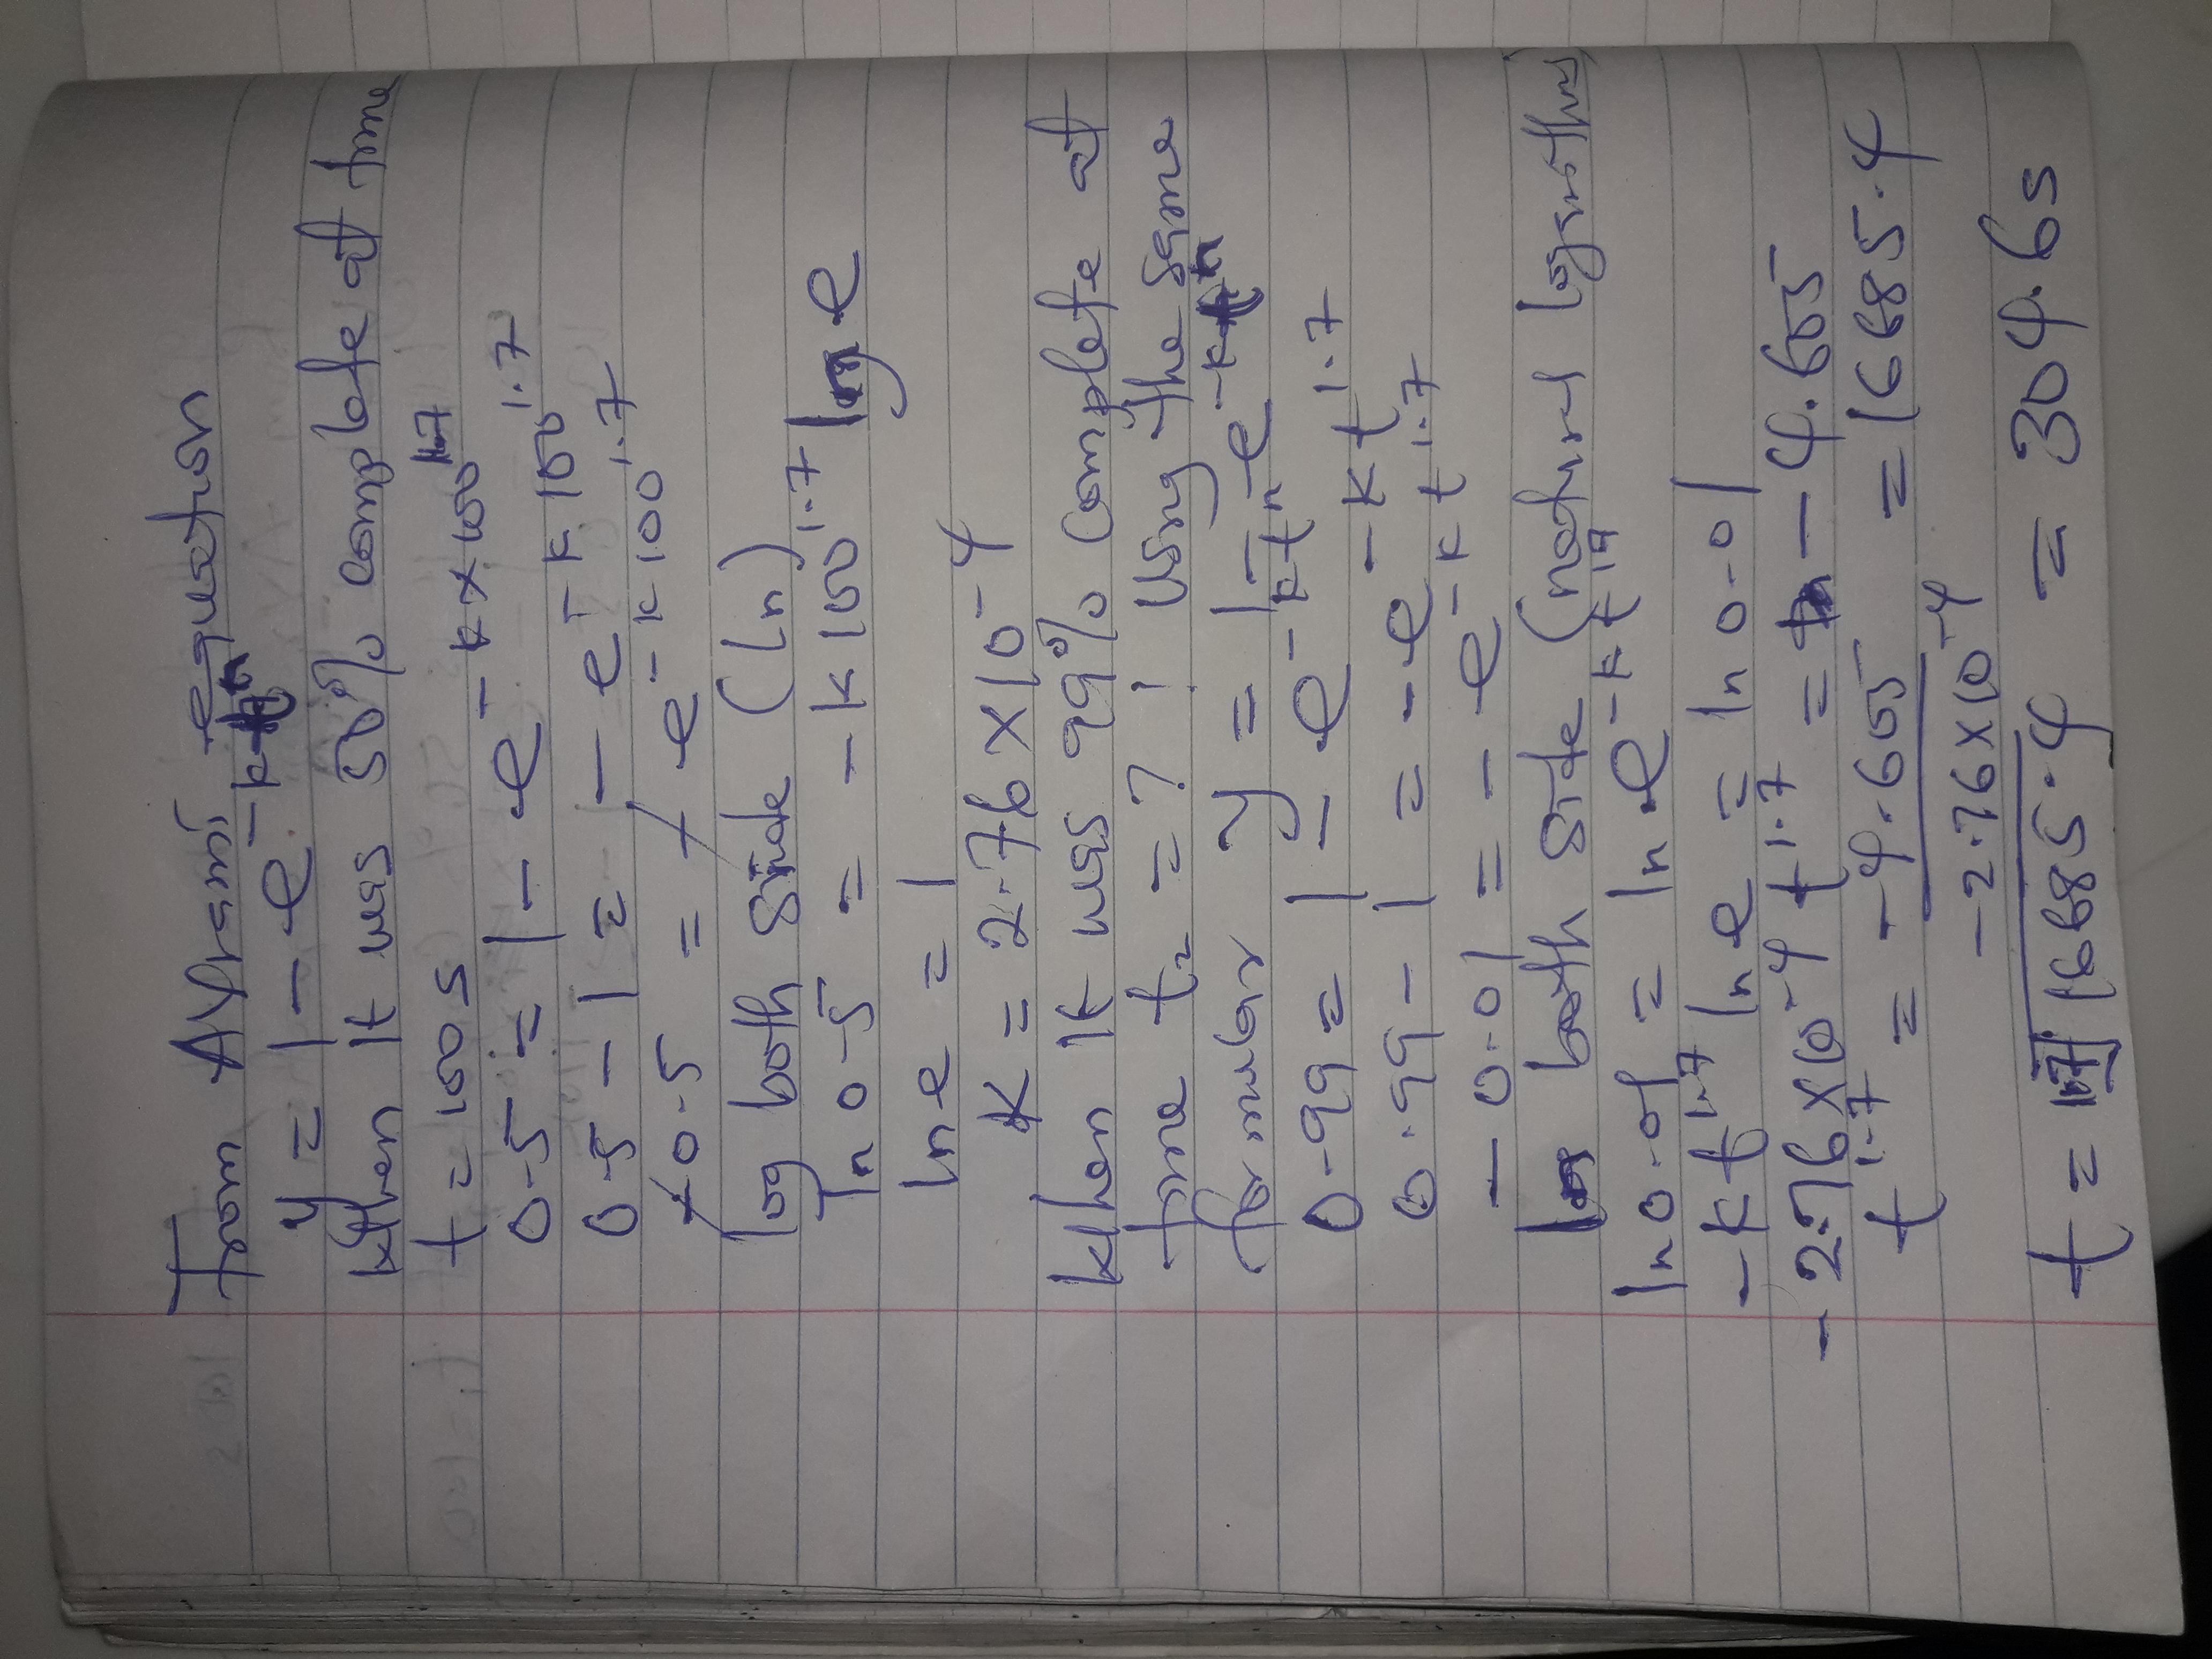 From AVrami equation
y = 1 - e^-kt^n
When It was 50% complete at time
t = 100 s
0.5 = 1 - e^-k x 100^1.7
0.5 - 1 = 1 - e^-k 100^1.7
-0.5 = - e^-k 100^1.7
log both side (ln)
ln 0.5 = - k 100^1.7 ln e
ln e = 1
K = 2.76 x 10^-4
When It was 99% complete at
time t2 = ? ; using the same
formular y = 1 - e^-kt^n
0.99 = 1 - e^-kt^1.7
0.99 - 1 = - e^-kt^1.7
- 0.01 = - e^-kt^1.7
ln both side (natural logarithm)
ln 0.01 = ln e^-kt^1.7
- kt^1.7 ln e = ln 0.01
- 2.76 x 10^-4 t^1.7 = - 4.605
t^1.7 = -4.605 / -2.76 x 10^-4 = 16685.4
t = 1.7√16685.4 = 304.6s